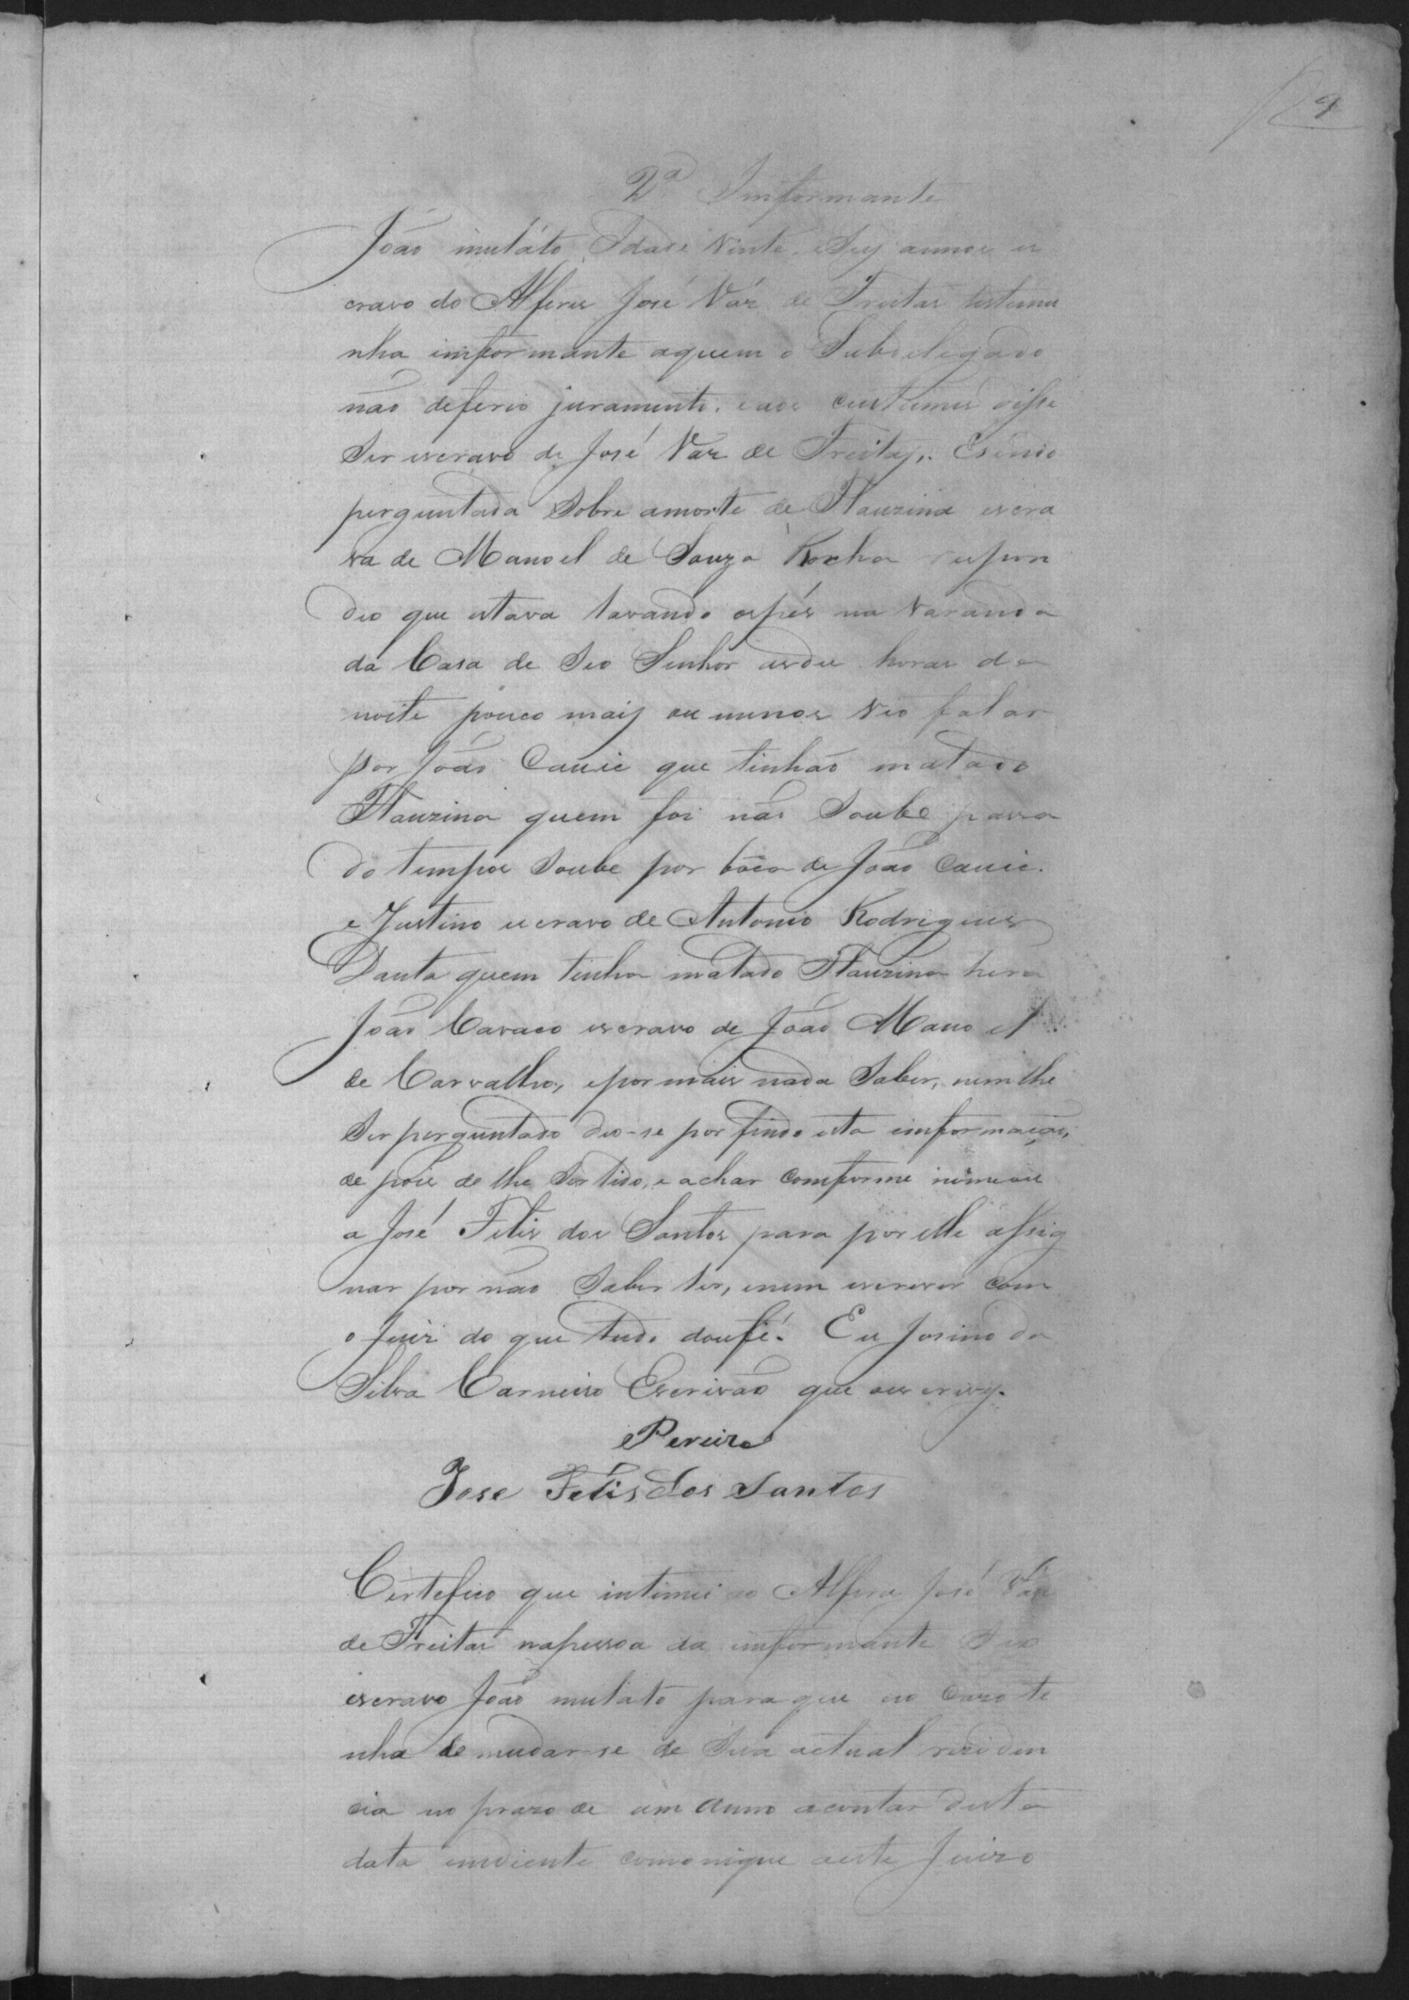 9
2ª Imformante
João mulato Idade Vinte e Seis annos es
cravo do Alferes José Vaz de Freitas testemu
nha imformante aquem o Subdelegado
não deferio juramento, e aos custumes disse
Ser escravo de José Vaz de Freitas,. Esendo
perguntado Sobre amorte de Flauzina escra
va de Manoel de Souza Rocha respon
deo que estava lavando ospés na Varanda
da Casa de Seo Senhor asdes horas da
noite pouco mais ou menos veo falar
por João Cauie que tinhão matado
Flauzina quem foi não Soube passa
do tempos Soube por bôca de João Cauie.
e Justino escravo de Antonio Rodrigues
Danta quem tinha matado Flauzina hera
João Cavaco escravo de João Mano el
de Carvalho, epormais nada Saber, nem lhe
Ser perguntado deo-se por findo esta imformação,
de pois de lhe Ser lido, e achar comforme nomeou
a José Felis dos Santos para por elle assig
nar por não Saber ler, enem escrever com
o Juiz do que tudo doufé. Eu Josino da
Silva Carneiro Escrivão que escrevy.
Pereira
Jose Felis dos Santos
Certefico que intimei ao Alferes José Vaz
de Freitas napessoa da imformante Seo
escravo João mulato para que no Cazo te
nha de mudar-se de Sua actual reziden
cia no prazo de um anno acontar desta
data emdiente comonique aeste Juizo